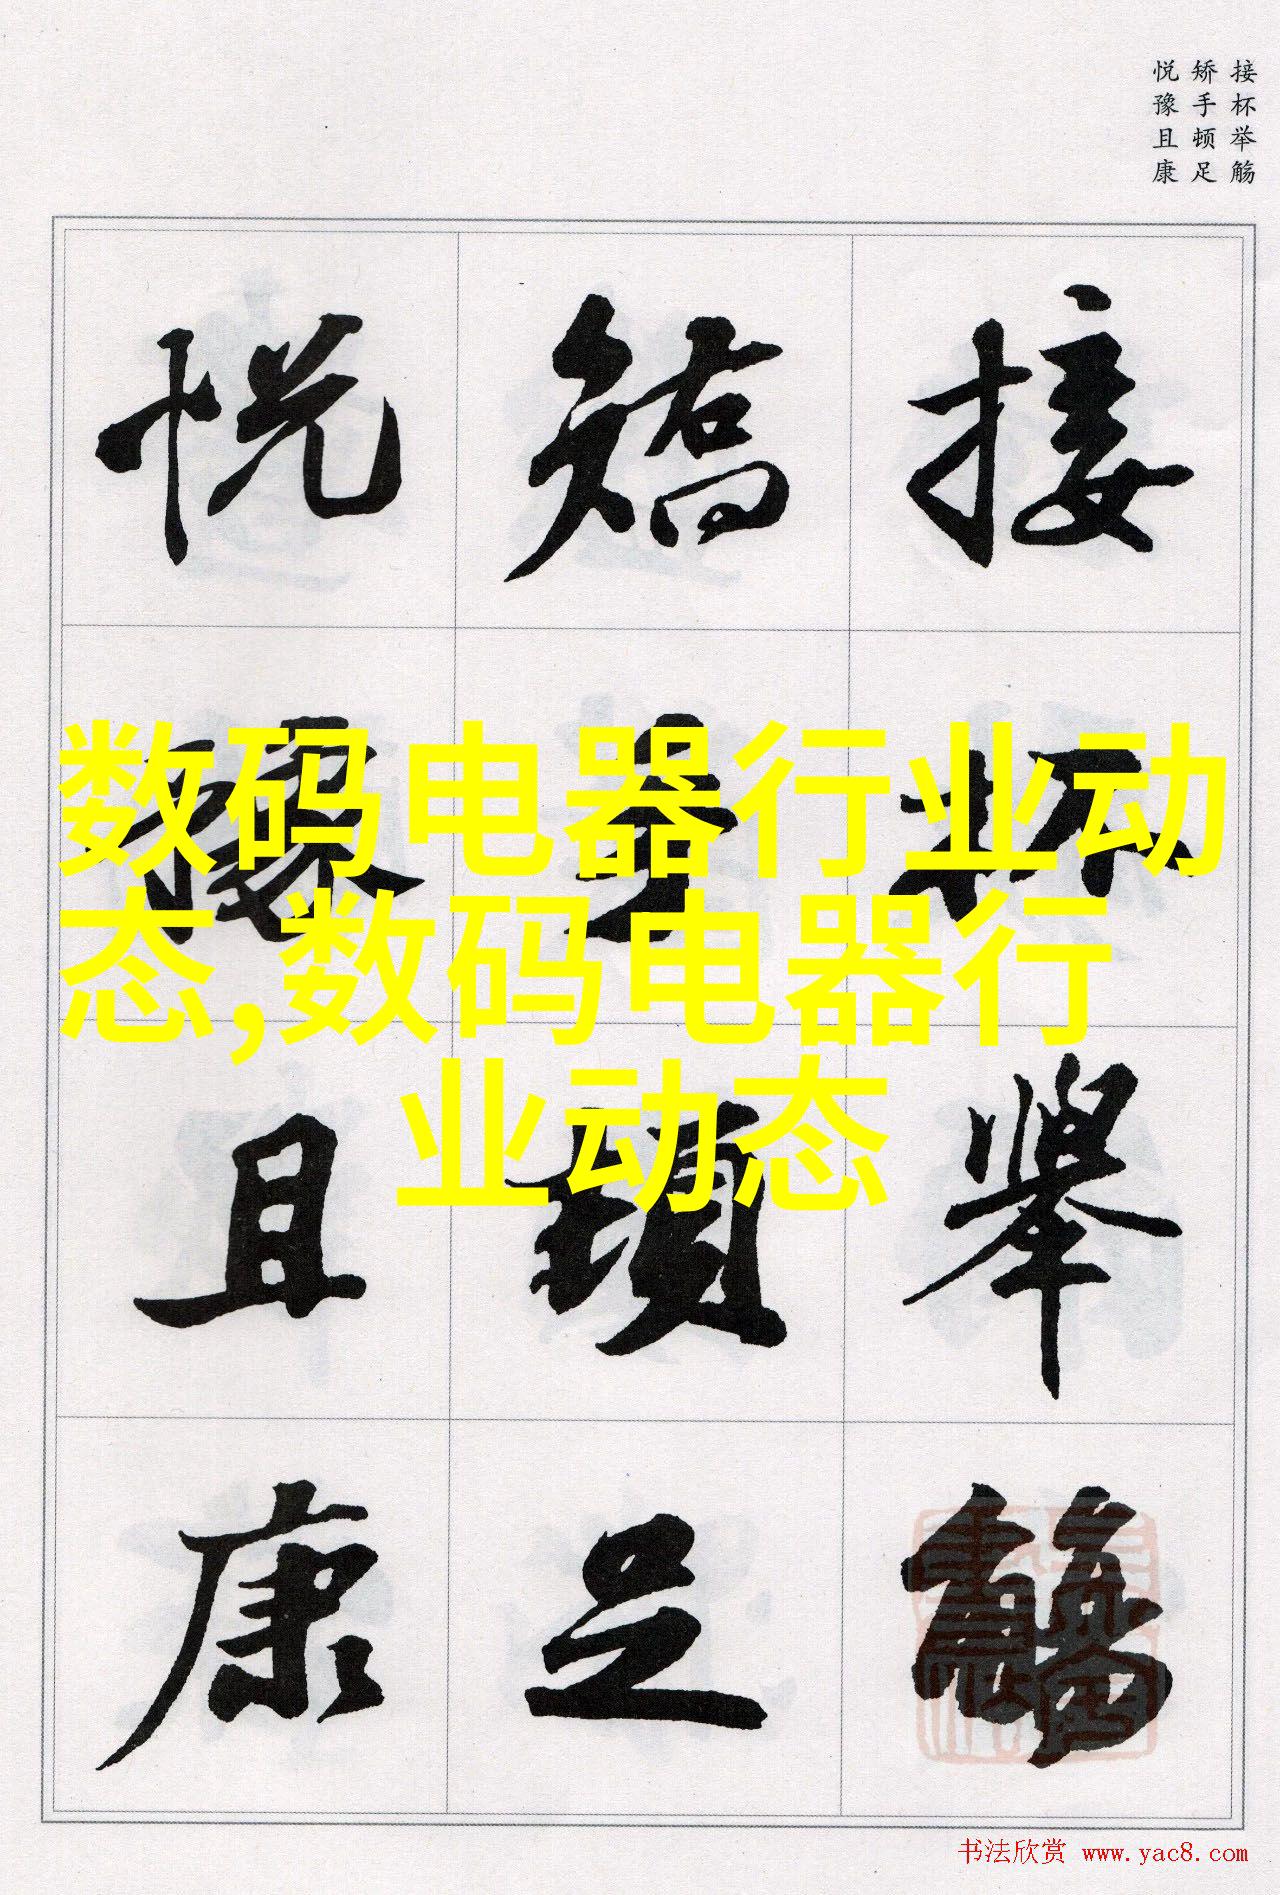 接杯举觞
矫手顿足
悦豫且康
接杯舉觴
矯手頓足
悦豫且康
数码电器行业动
态,数码电器行
业动态
书法欣赏 www.yac8.com